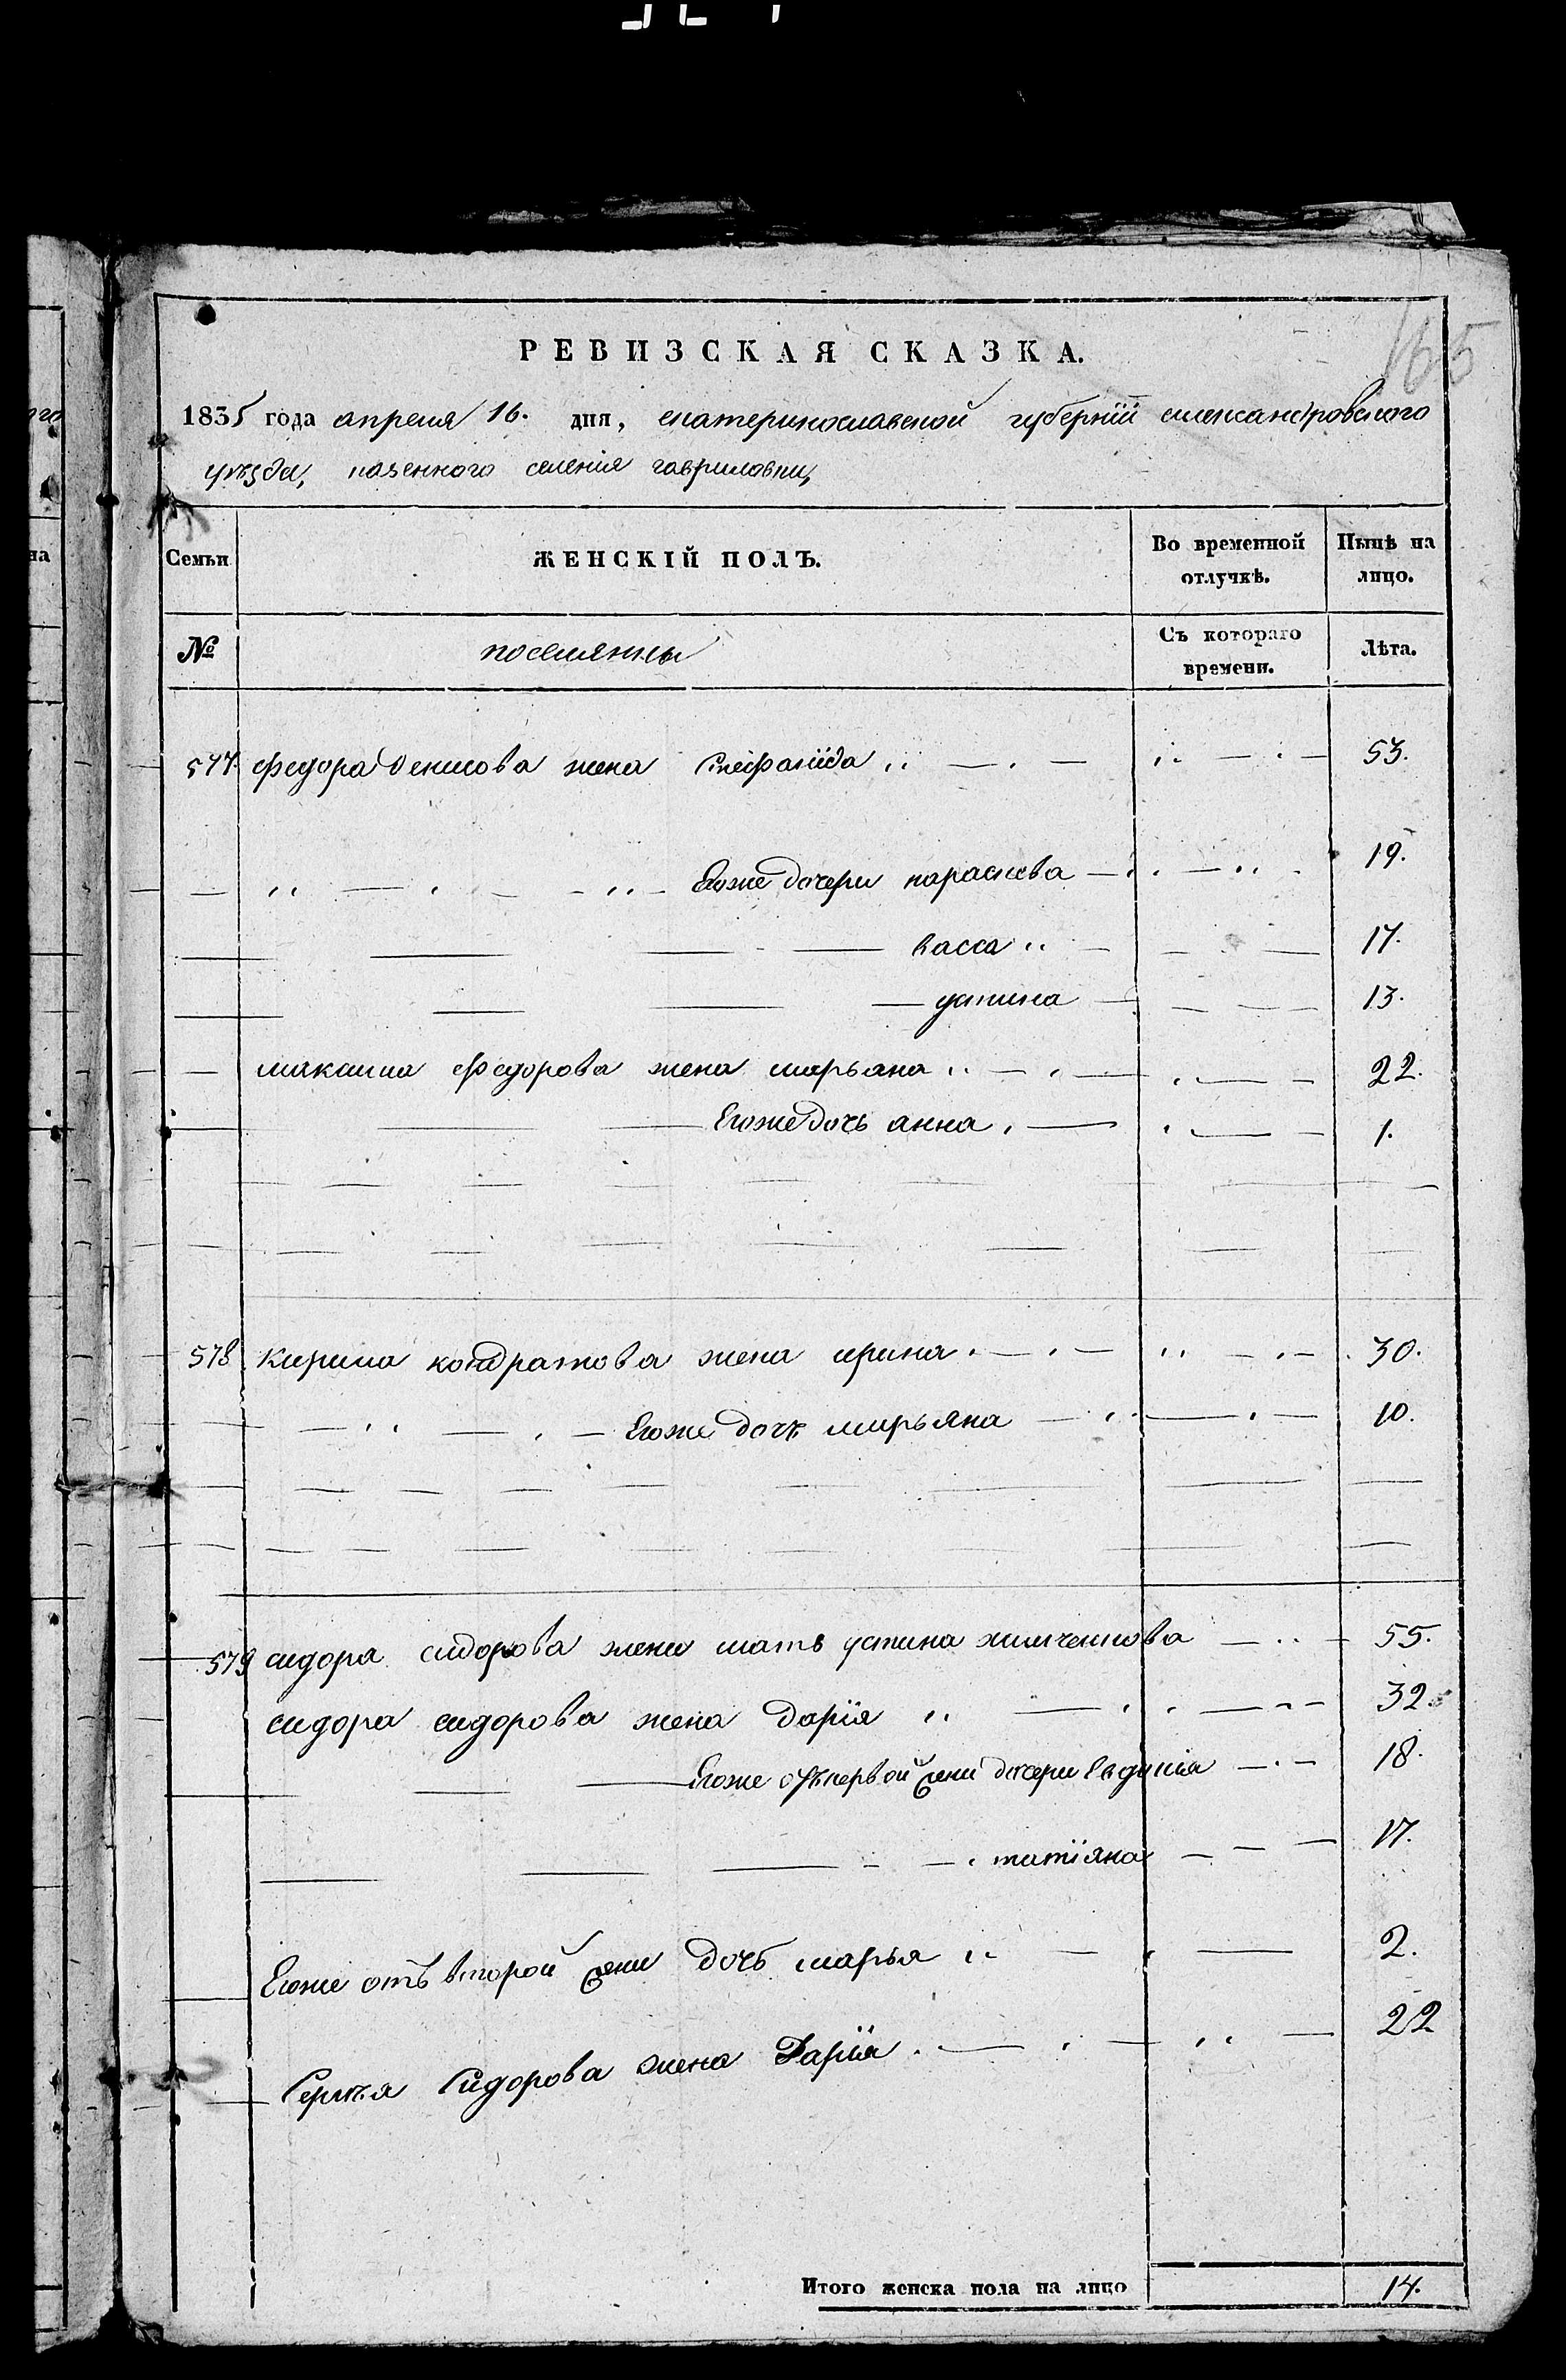 165
РЕВИЗСКАЯ СКАЗКА.
1835 года апреля 16. дня, екатеринославской губернїи александровского
уѣзда, казенного селенїя гавриловки,
Семьи
ЖЕНСКІЙ ПОЛЪ.
Во временной отлучкѣ.
Нынѣ на лицо.
№
поселянки
Съ котораго времени.
Лѣта.
577. федора денисова жена Степанида 53.
Егоже дочери параскева 19.
васса 17.
устина 13.
максима федорова жена марьяна 22.
Егоже дочь анна 1.
578. кирила кондратова жена ирина 30.
Егоже дочь марьяна 10.
579 сидора сидорова жени мать устина 55.
сидора сидорова жена дарїя 32.
Егоже отъ первой жени дочери Евдокїя 18.
татїяна 17.
Егоже отъ второй жени дочь марья 2.
Сергѣя Сидорова жена Дарїя 22
Итого женска пола на лицо 14.